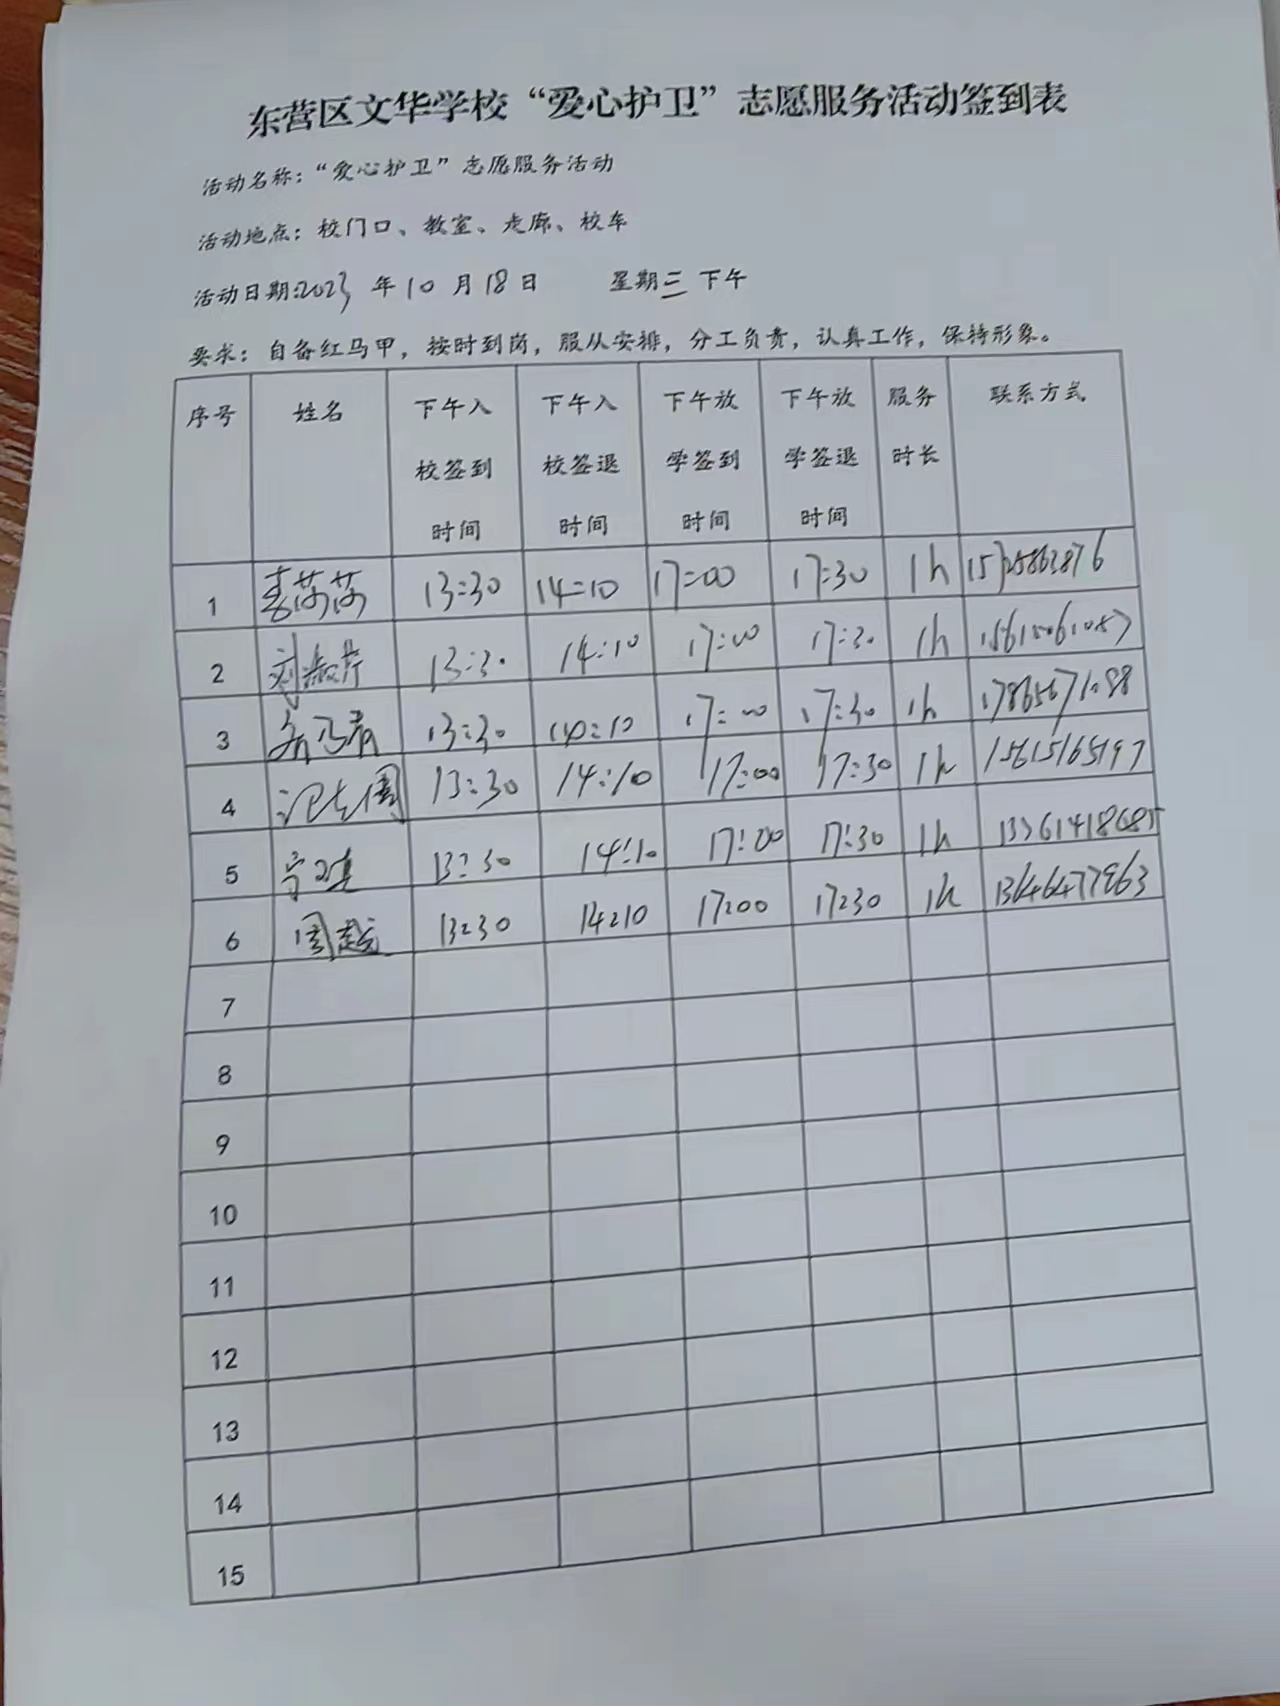 东营区文华学校“爱心护卫”志愿服务活动签到表
活动名称：“爱心护卫”志愿服务活动
活动地点：校门口、教室、走廊、校车
活动日期:2023 年 10 月 18 日 星期三 下午
要求：自备红马甲，按时到岗，服从安排，分工负责，认真工作，保持形象。
序号 姓名 下午入校签到时间 下午入校签退时间 下午放学签到时间 下午放学签退时间 服务时长 联系方式
1 李莎莎 13:30 14:10 17:00 17:30 1h
2 13:30 14:10 17:00 17:30 1h
3 13:30 14:10 17:00 17:30 1h
4 13:30 14:10 17:00 17:30 1h 15615165197
5 13:30 14:10 17:00 17:30 1h
6 周越 13:30 14:10 17:00 17:30 1h 13646477863
7
8
9
10
11
12
13
14
15